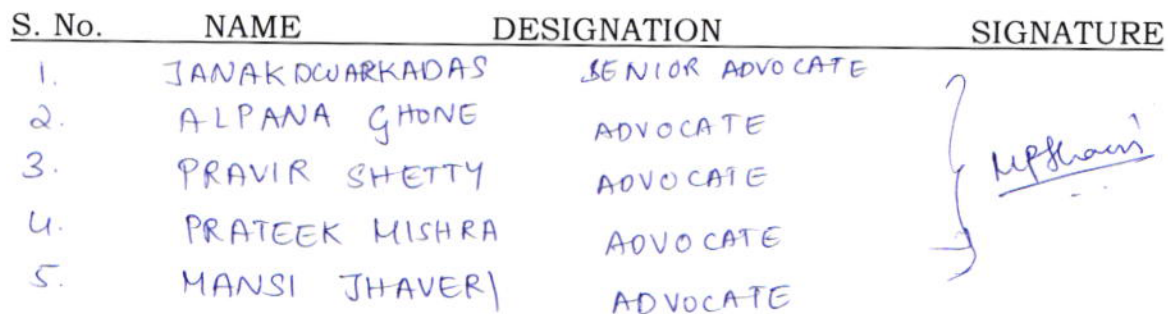 S. No. NAME DESIGNATION SIGNATURE
1. JANAK DWARKADAS SENIOR ADVOCATE
2. ALPANA GHONE ADVOCATE
3. PRAVIR SHETTY ADVOCATE
4. PRATEEK MISHRA ADVOCATE
5. MANSI JHAVERI ADVOCATE